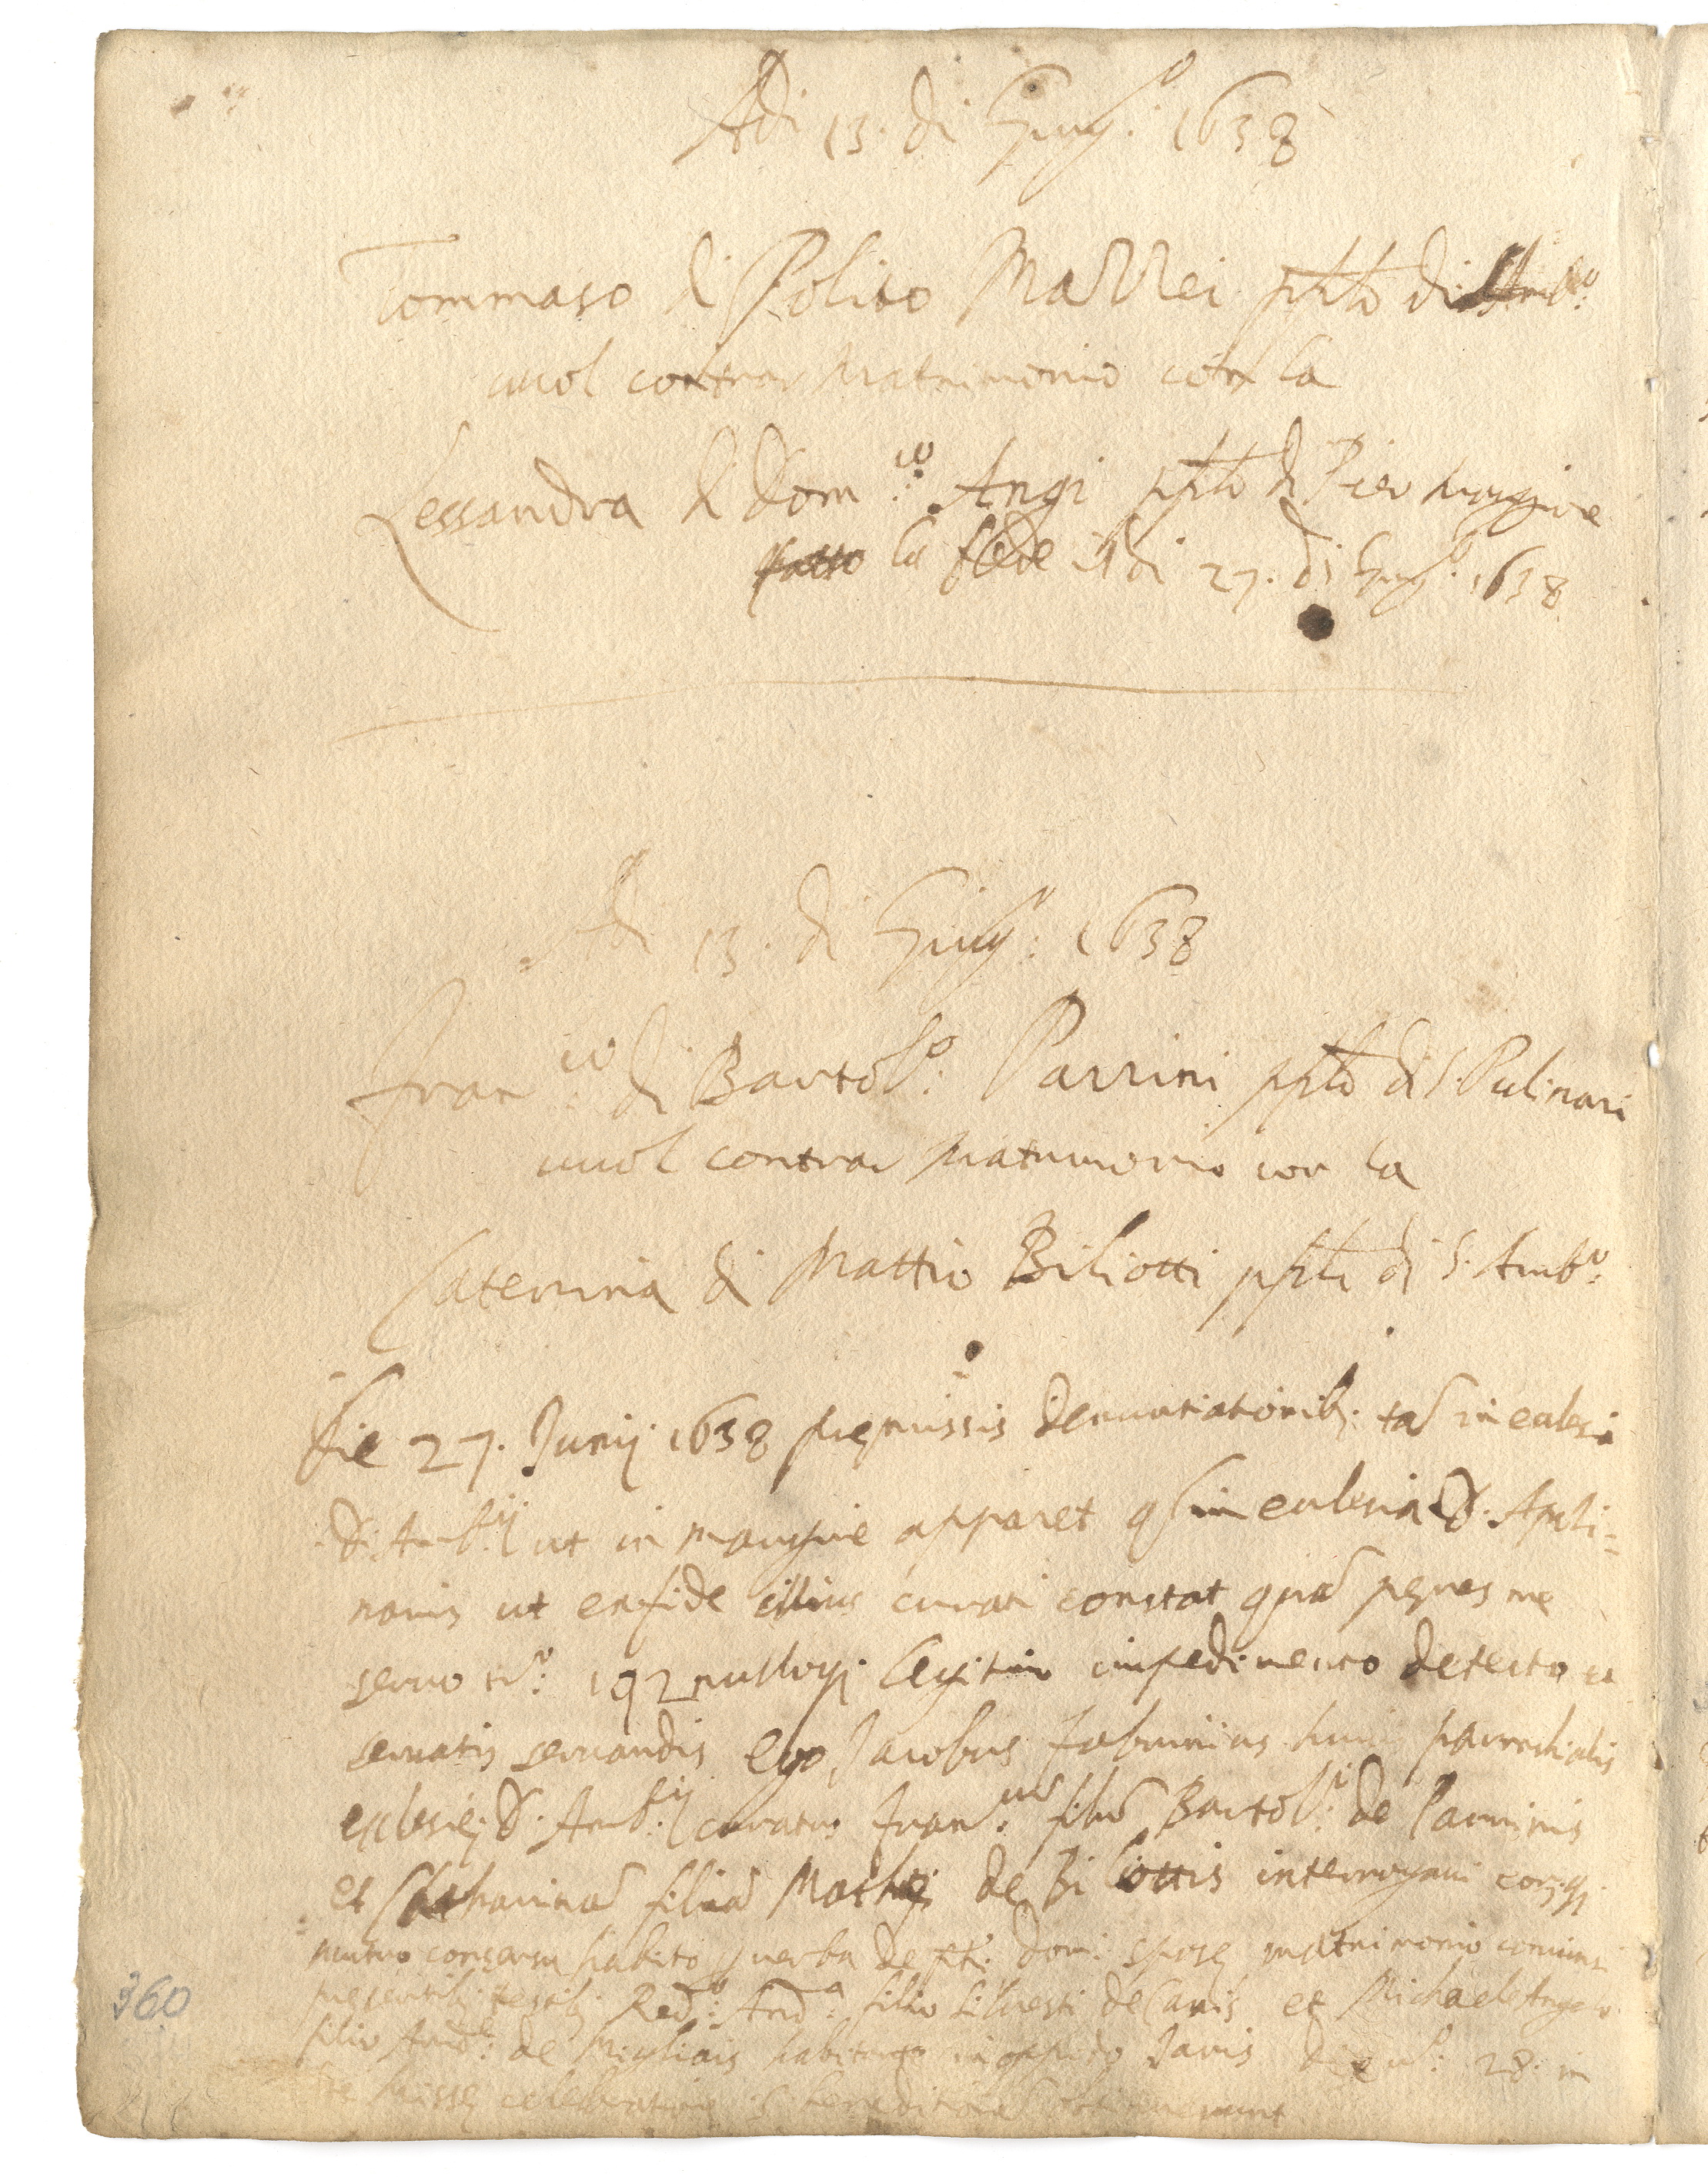 Adi 13. di Giug.º 1638
Tommaso di Polito Mazzei pplo di Amb.º
vuol contrar Matrimonio con la
Lessandra di Dom.co Angi pplo di S. Pier Maggiore
fatto la fede Adi 27. di Giug.º 1638
Adi 13. di Giug.º 1638
Fran.co di Bartol.º Parrini pplo di S. Pulinari
vuol contrar Matrimonio con la
Caterina di Mattio Biliotti pplo di S. Amb.º
Die 27. Junij 1638 premissis denuntiationib; ta in eclesia
S. Amb.ij ut in margine apparet q in eclesia S. Apoli=
naris ut ex fide illius curati constat qua penes me
servo n.º 192 nulloq; legitimo impedimento detecto
servatis servandis ego Jacobus Fabrinius parrochialis
eclesie S. Amb.ij curatus Fran.um filiu Bartol.i de Parrinis
et Chatharina filia Mathei de Biliottis interrogavi eorq;
mutuo consensu habito p verba de pti. domi spose matrimonio coniunxi
presentib; testib; Red.º And.a filio Silvestri de Canis et Michaele Angelo
filio And.e de Migliais 28. in
misse celebratione benedictione
360